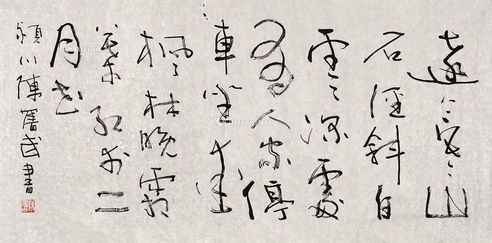 遠上寒山
石徑斜白
雲深處
有人家停
車坐愛
楓林晚霜
葉紅於二
月花
穎川陳舊武書